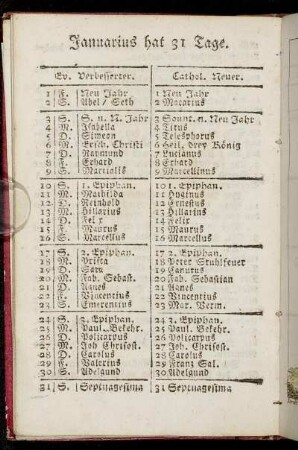 Januarius hat 31 Tage.
Ev. Verbesserter. Cathol. Neuer.
1 F. Neu Jahr 1 Neu Jahr
2 S. Abel / Seth 2 Macarius
3 S. S. n. N. Jahr 3 Sonnt. n. Neu Jahr
4 M. Isabella 4 Titus
5 D. Simeon 5 Telesphorus
6 M. Ersch. Christi 6 Heil. drey König
7 D. Raymund 7 Lucianus
8 F. Erhard 8 Erhard
9 S. Martialis 9 Marcellinus
10 S. 1. Epiphan. 10 1. Epiphan.
11 M. Mathilda 11 Hyginus
12 D. Reinhold 12 Ernestus
13 M. Hilarius 13 Hillarius
14 D. Felix 14 Felix
15 F. Maurus 15 Maurus
16 S. Marcellus 16 Marcellus
17 S. 2. Epiphan. 17 2. Epiphan.
18 M. Prisca 18 Peter Stuhlfeuer
19 D. Sara 19 Canutus
20 M. Fab. Sebast. 20 Fab. Sebastian
21 D. Agnes 21 Agnes
22 F. Vincentius 22 Vincentius
23 S. Emerentius 23 Mar. Verm.
24 S. 3. Epiphan. 24 3. Epiphan.
25 M. Paul. Bekehr. 25 Paul. Bekehr.
26 D. Policarpus 26 Policarpus
27 M. Joh Chrisost. 27 Joh. Chrisost.
28 D. Carolus 28 Carolus
29 F. Valerius 29 Franz Sal.
30 S. Adelgund 30 Adelgund
31 S. Septuagesima 31 Septuagesima